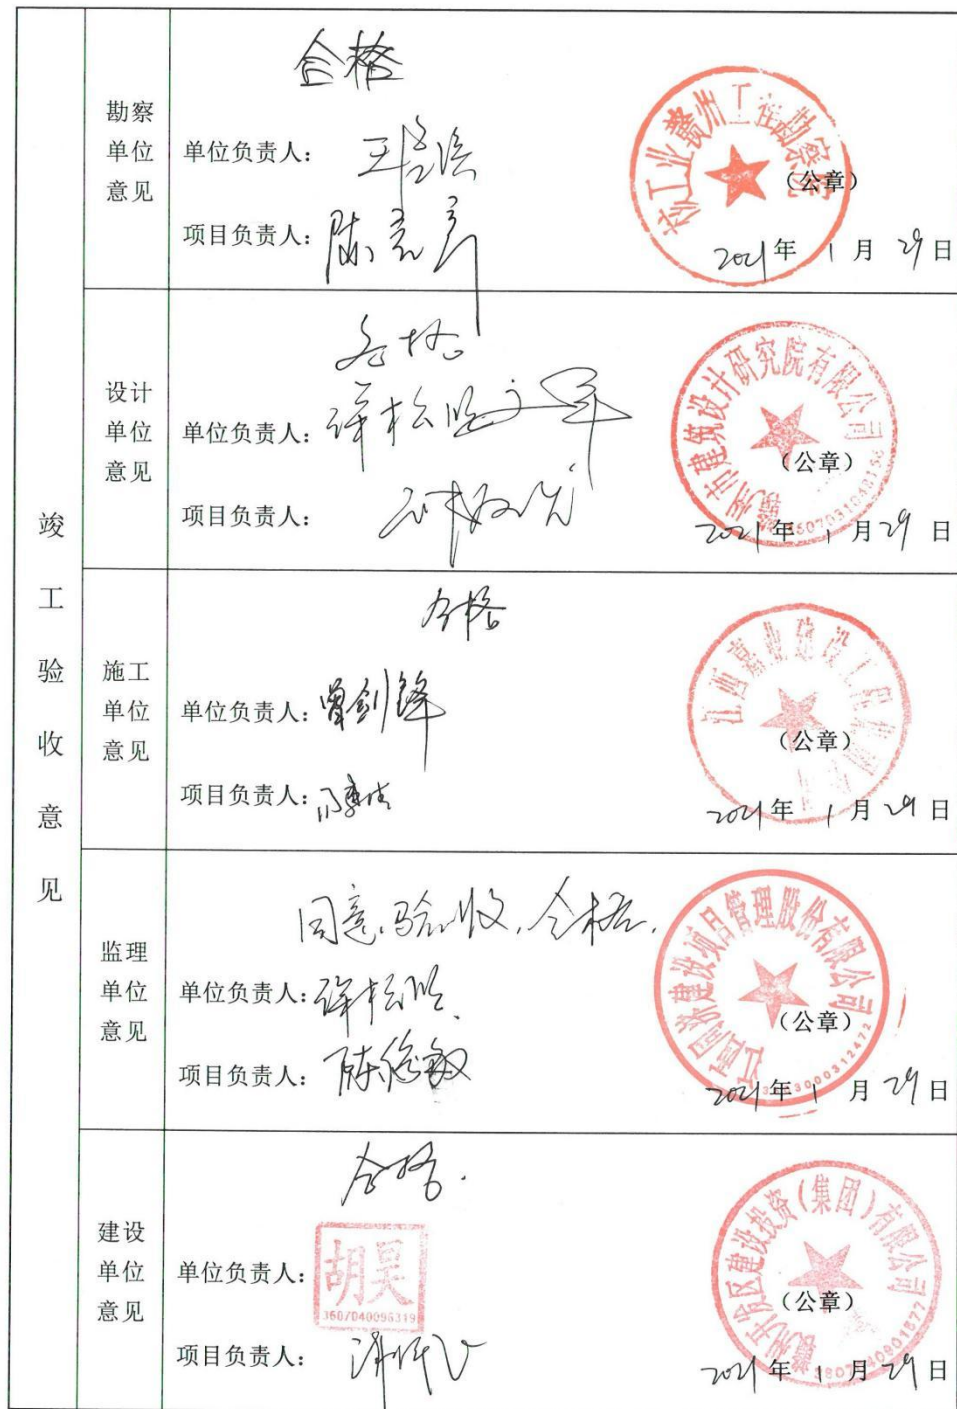 竣工验收意见
勘察单位意见
合格
单位负责人：
项目负责人：
核工业赣州工程勘察院
（公章）
2021年 1 月 29日
设计单位意见
合格
单位负责人：
项目负责人：
赣州市建筑设计研究院有限公司
（公章）
2021年 1 月 29 日
施工单位意见
合格
单位负责人：曾剑锋
项目负责人：
江西嘉业建设工程有限公司
（公章）
2021年 1 月 29 日
监理单位意见
同意验收，合格.
单位负责人：
项目负责人：陈俊敏
江西居济建设项目管理股份有限公司
（公章）
2021年 1 月 29 日
建设单位意见
合格.
单位负责人：
胡昊
3607040096319
项目负责人：
赣州开发区建设投资（集团）有限公司
（公章）
2021年 1 月 29 日